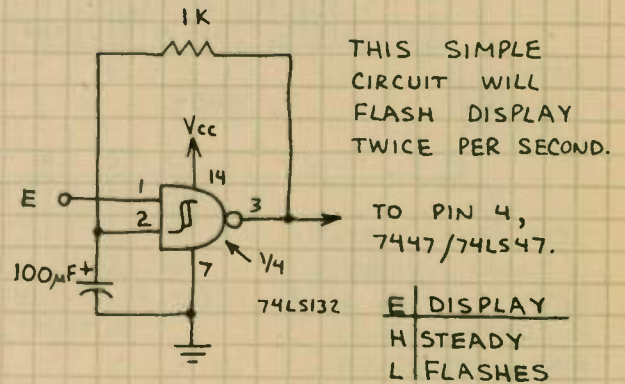 1K
THIS SIMPLE
CIRCUIT WILL
FLASH DISPLAY
TWICE PER SECOND.
Vcc
14
E
1
2
3
TO PIN 4,
7447/74LS47.
7
1/4
100µF+
74LS132
E DISPLAY
H STEADY
L FLASHES